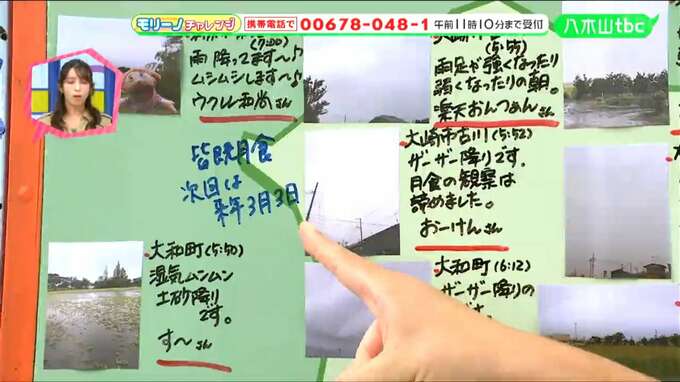 モリーノチャレンジ
携帯電話で 00678-048-1 午前11時10分まで受付
八木山tbc
(7:00)
雨降ってます〜♪
ムシムシします〜♪
ウクレレ和尚さん
(5:55)
雨足が強くなったり
弱くなったりの朝。
楽天おんつぁんさん
皆既月食
次回は
来年3月3日
大崎市古川(5:52)
ザーザー降りです。
月食の観察は
諦めました。
おーけんさん
大和町(5:50)
湿気ムンムン
土砂降り
です。
す〜さん
大和町(6:12)
ザーザー降りの